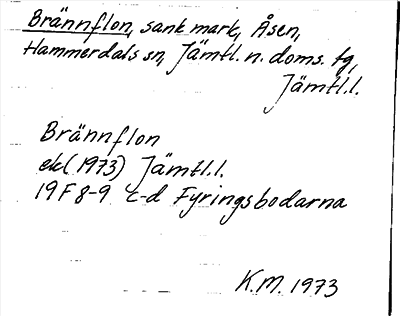 Brännflon, sank mark, Åsen,
Hammerdals sn, Jämtl. n. doms. tg,
Jämtl.l.
Brännflon
ek (1973) Jämtl.l.
19F 8-9 c-d Fyringsbodarna
K.M. 1973